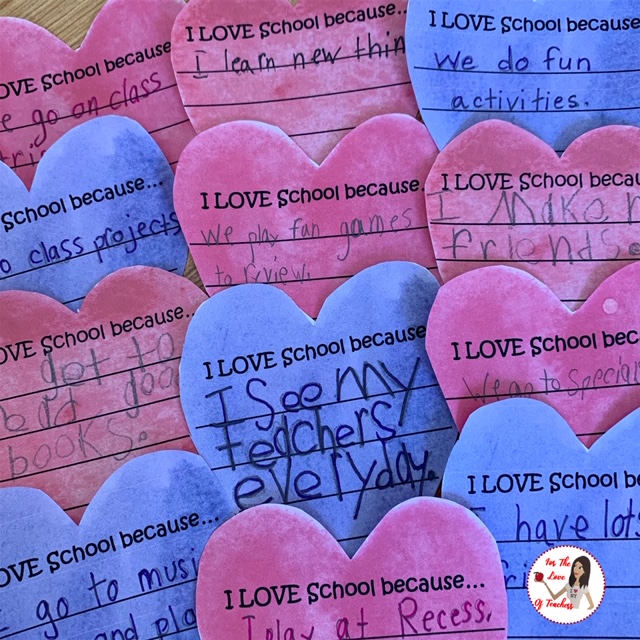 LOVE School because
go on class
I LOVE School because...
I learn new thin
I LOVE School because...
we do fun
activities.
School because...
class projects
I LOVE School because...
We play fun games
to review.
I LOVE School becau
I make
friends.
OVE School because...
get to
books.
I LOVE School because
I See my
teachers
everyday.
I LOVE School beca
We go to Special
OVE School because...
go to musi
and pla
I LOVE School because...
I play at Recess.
I LOVE School be
I have lots
For The
Love
Of Teachers